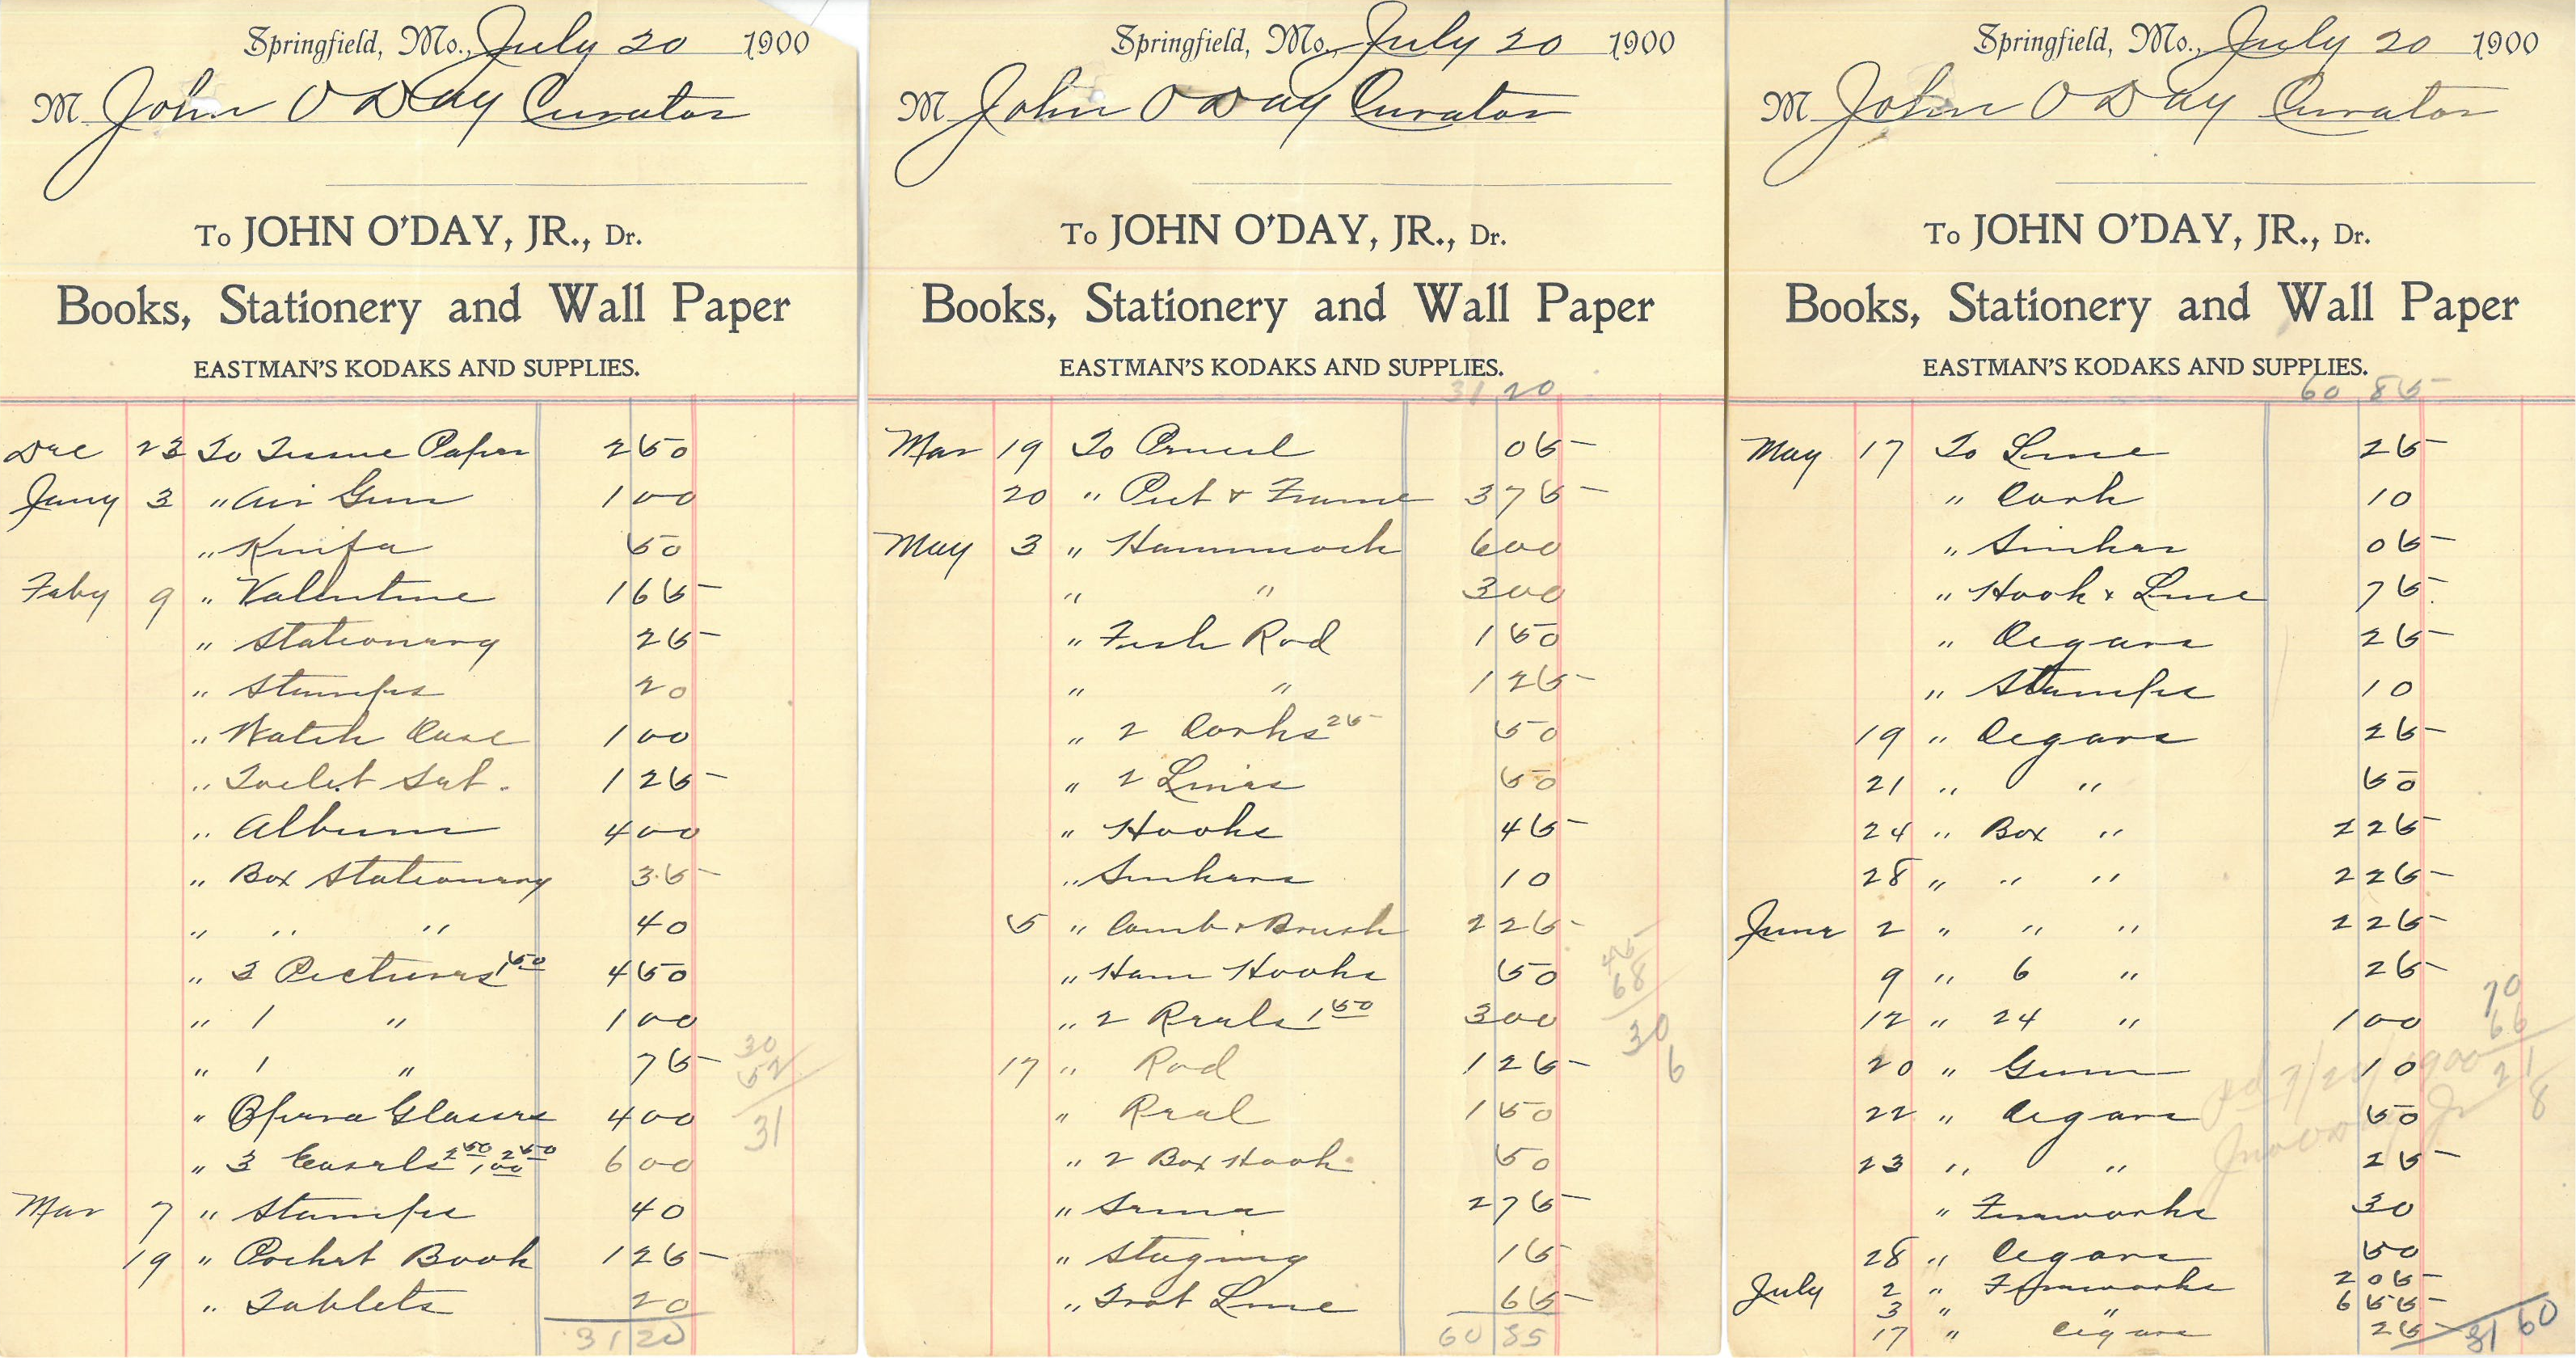 Springfield, Mo., July 20 1900
M John O Day Curator
To JOHN O'DAY, JR., Dr.
Books, Stationery and Wall Paper
EASTMAN'S KODAKS AND SUPPLIES.
Dec 23 To Tissue Paper 2 50
Jany 3 " Air Gun 1 00
" Knife 50
Feby 9 " Valentine 1 65
" Stationary 25
" Stamps 20
" Watch Case 1 00
" Toilet Set. 1 25
" Album 4 00
" Box Stationary 35
" " " 40
" 3 Pictures 1 50 4 50
" 1 " 1 00
" 1 " 75
" Opera Glasses 4 00
" 3 Easels 2 50 2 50 " 1 00 6 00
Mar 7 " Stamps 40
19 " Pocket Book 1 25
" Tablets 20
31 20
30
52
31
Springfield, Mo., July 20 1900
M John O Day Curator
To JOHN O'DAY, JR., Dr.
Books, Stationery and Wall Paper
EASTMAN'S KODAKS AND SUPPLIES.
31 20
Mar 19 To Pencil 05
20 " Pict & Frame 3 75
May 3 " Hammock 6 00
" " 3 00
" Fish Rod 1 50
" " 1 25
" 2 Corks 25 50
" 2 Lines 50
" Hooks 45
" Sinkers 10
5 " Comb & Brush 2 25
" Ham Hooks 50
" 2 Reels 1 50 3 00
17 " Rod 1 25
" Reel 1 50
" 2 Box Hook 50
" Seine 2 75
" Staging 15
" Trot Line 65
60 85
45
68
30
6
Springfield, Mo., July 20 1900
M John O Day Curator
To JOHN O'DAY, JR., Dr.
Books, Stationery and Wall Paper
EASTMAN'S KODAKS AND SUPPLIES.
60 85
May 17 To Line 25
" Cork 10
" Sinker 05
" Hook & Line 75
" Cigars 25
" Stamps 10
19 " Cigars 25
21 " " 50
24 " Box " 2 25
28 " " " 2 25
June 2 " " " 2 25
9 " 6 " 25
12 " 24 " 1 00
20 " Gum 10
22 " Cigars 50
23 " " 25
" Fireworks 30
28 " Cigars 50
July 2 " Fireworks 2 05
3 " " 6 55
17 " Cigars 25
81 60
70
66
21
8
pd 7/21/1900
Jno O Day Jr